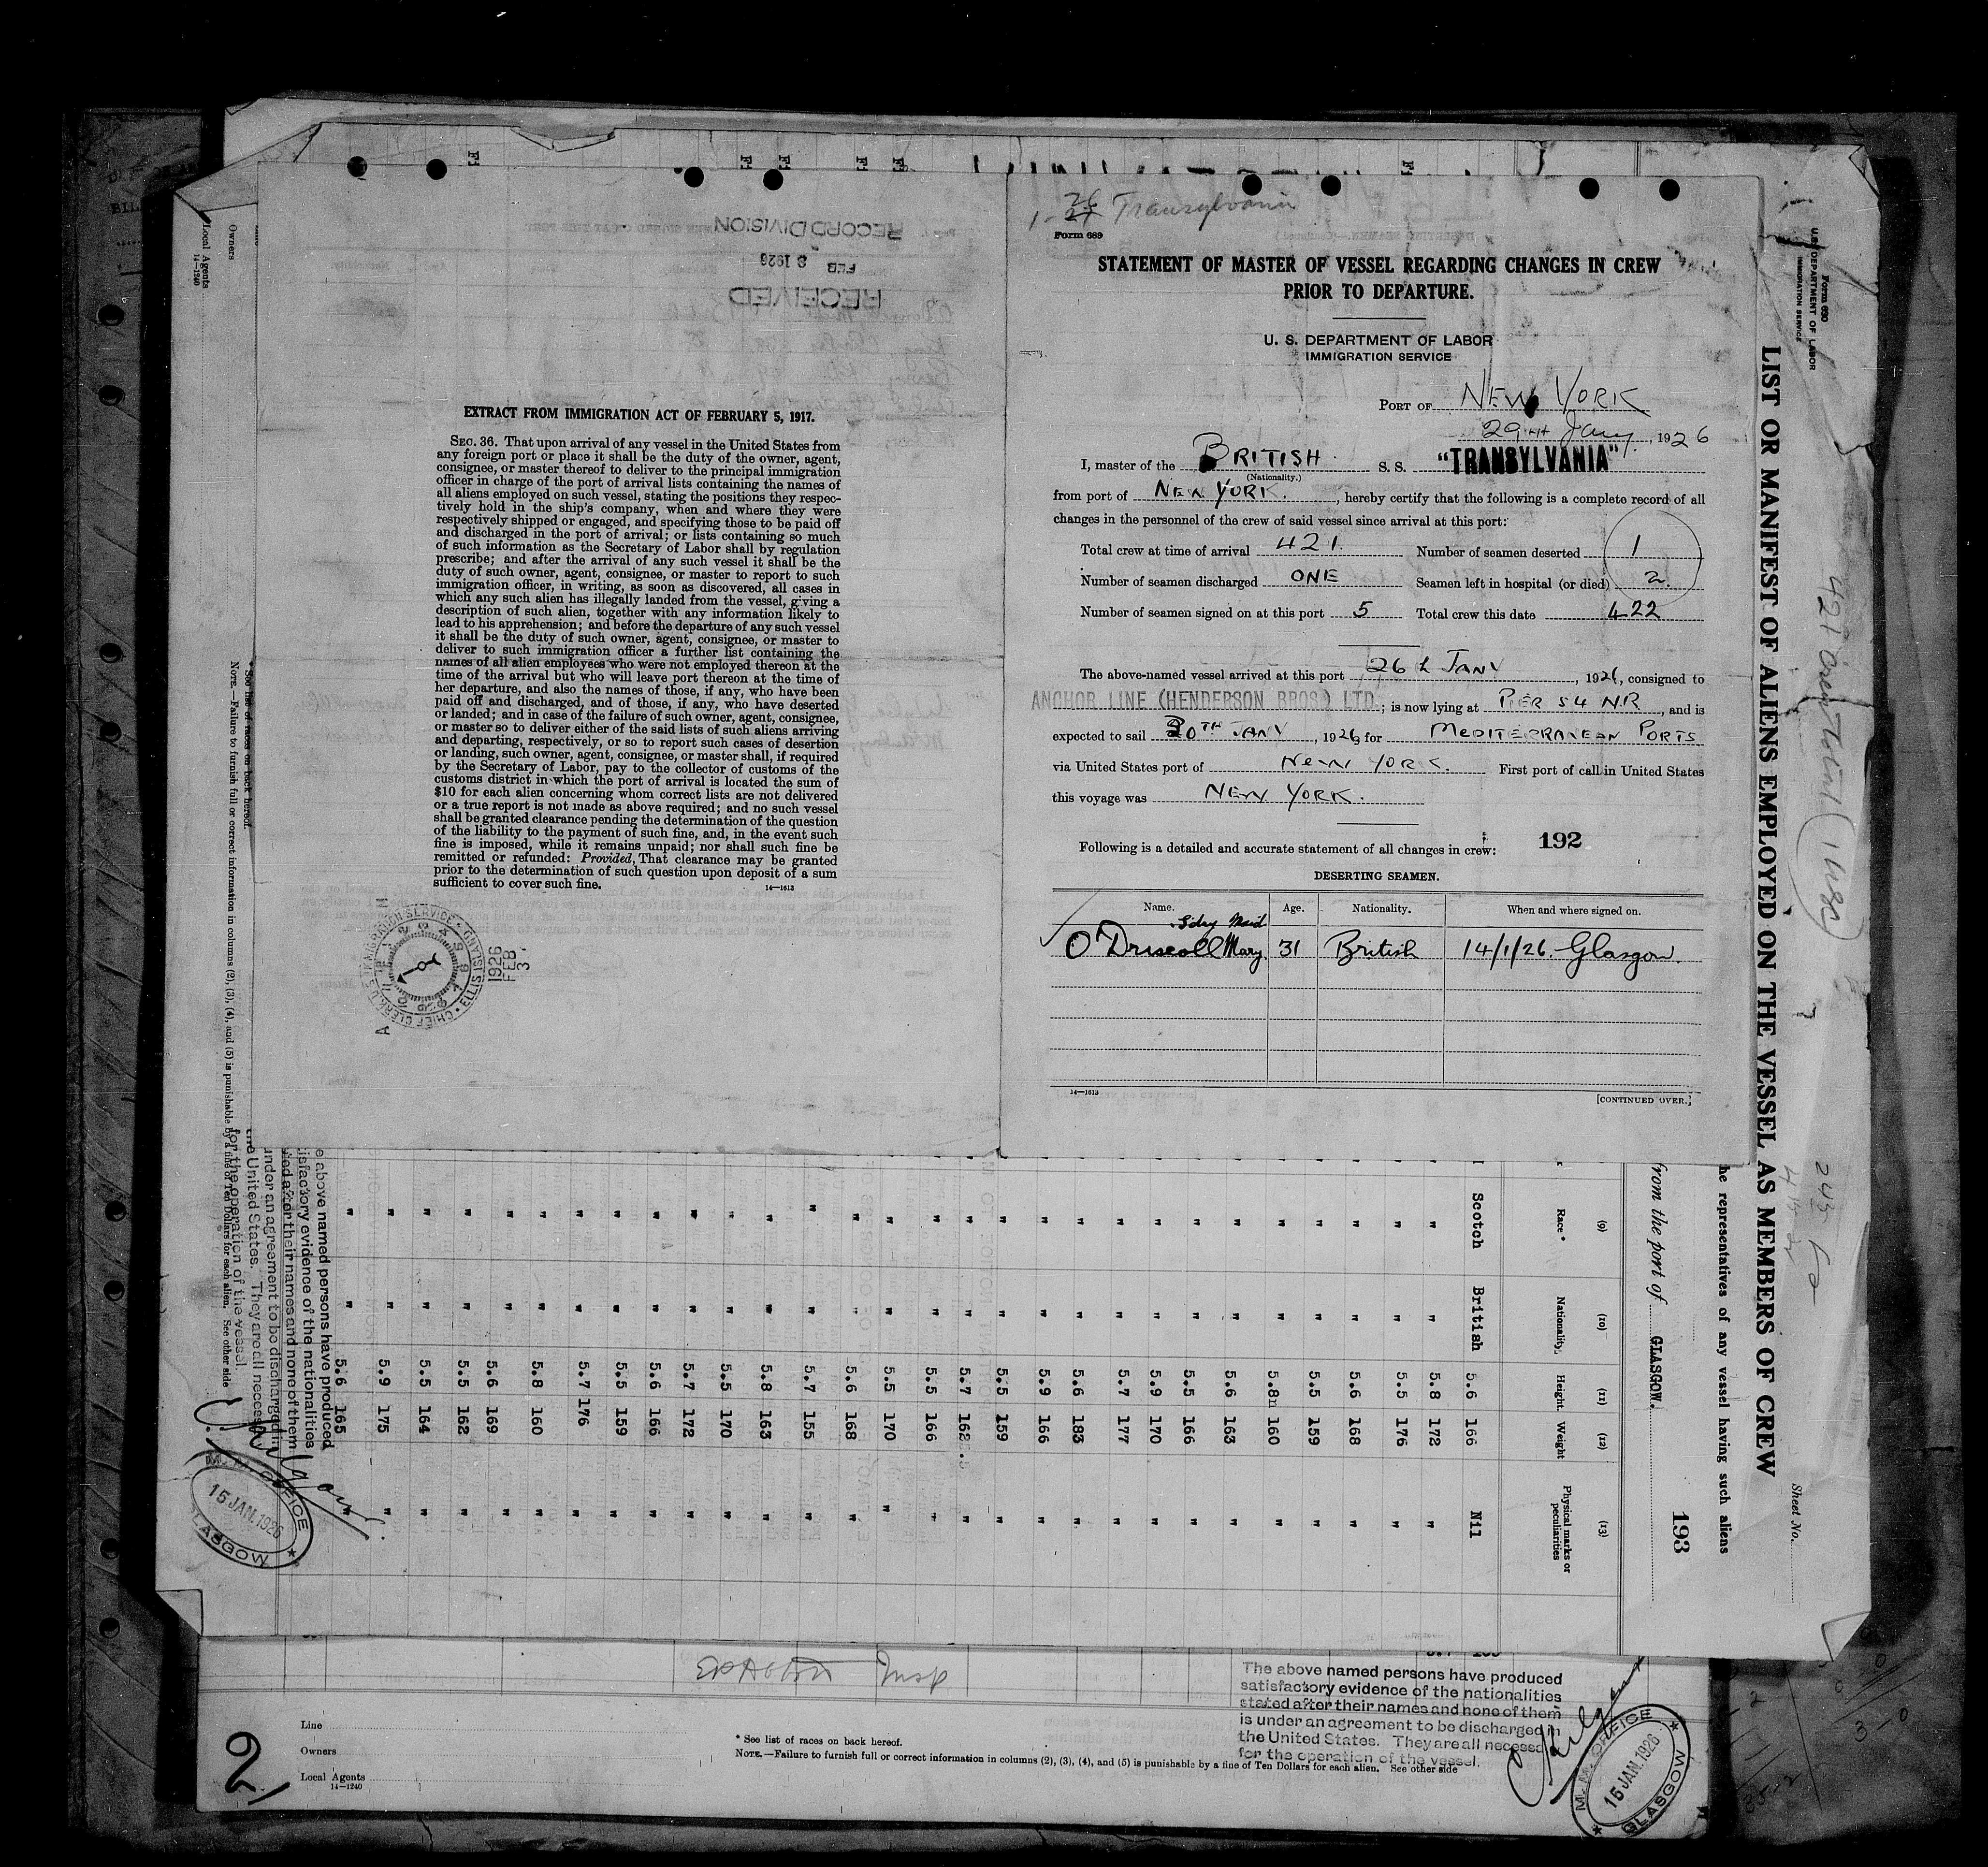 RECORD DIVISION
FEB 3 1926
RECEIVED
EXTRACT FROM IMMIGRATION ACT OF FEBRUARY 5, 1917.
SEC. 36. That upon arrival of any vessel in the United States from
any foreign port or place it shall be the duty of the owner, agent,
consignee, or master thereof to deliver to the principal immigration
officer in charge of the port of arrival lists containing the names of
all aliens employed on such vessel, stating the positions they respec-
tively hold in the ship's company, when and where they were
respectively shipped or engaged, and specifying those to be paid off
and discharged in the port of arrival; or lists containing so much
of such information as the Secretary of Labor shall by regulation
prescribe; and after the arrival of any such vessel it shall be the
duty of such owner, agent, consignee, or master to report to such
immigration officer, in writing, as soon as discovered, all cases in
which any such alien has illegally landed from the vessel, giving a
description of such alien, together with any information likely to
lead to his apprehension; and before the departure of any such vessel
it shall be the duty of such owner, agent, consignee, or master to
deliver to such immigration officer a further list containing the
names of all alien employees who were not employed thereon at the
time of the arrival but who will leave port thereon at the time of
her departure, and also the names of those, if any, who have been
paid off and discharged, and of those, if any, who have deserted
or landed; and in case of the failure of such owner, agent, consignee,
or master so to deliver either of the said lists of such aliens arriving
and departing, respectively, or so to report such cases of desertion
or landing, such owner, agent, consignee, or master shall, if required
by the Secretary of Labor, pay to the collector of customs of the
customs district in which the port of arrival is located the sum of
$10 for each alien concerning whom correct lists are not delivered
or a true report is not made as above required; and no such vessel
shall be granted clearance pending the determination of the question
of the liability to the payment of such fine, and, in the event such
fine is imposed, while it remains unpaid; nor shall such fine be
remitted or refunded: Provided, That clearance may be granted
prior to the determination of such question upon deposit of a sum
sufficient to cover such fine.
14—1613
1926
FEB
3
1-26 Transylvania
Form 689
STATEMENT OF MASTER OF VESSEL REGARDING CHANGES IN CREW
PRIOR TO DEPARTURE.
U. S. DEPARTMENT OF LABOR
IMMIGRATION SERVICE
PORT OF NEW YORK
29TH Jany, 1926
I, master of the BRITISH S. S. "TRANSYLVANIA"
(Nationality.)
from port of NEW YORK., hereby certify that the following is a complete record of all
changes in the personnel of the crew of said vessel since arrival at this port:
Total crew at time of arrival 421. Number of seamen deserted 1
Number of seamen discharged ONE Seamen left in hospital (or died) 2.
Number of seamen signed on at this port 5 Total crew this date 422
The above-named vessel arrived at this port 26th JANY, 1926, consigned to
ANCHOR LINE (HENDERSON BROS) LTD.; is now lying at PIER 54 N.R, and is
expected to sail 30TH JANY, 1926 for MEDITERRANEAN PORTS
via United States port of NEW YORK. First port of call in United States
this voyage was NEW YORK.
Following is a detailed and accurate statement of all changes in crew: 192
DESERTING SEAMEN.
Name. Age. Nationality. When and where signed on.
O'Driscoll Mary 31 British 14/1/26. Glasgow.
14—1613
[CONTINUED OVER.]
Form 680
U.S. DEPARTMENT OF LABOR
IMMIGRATION SERVICE
LIST OR MANIFEST OF ALIENS EMPLOYED ON THE VESSEL AS MEMBERS OF CREW
Sheet No.
he representatives of any vessel having such aliens
from the port of GLASGOW.
193
(9) (10) (11) (12) (13)
Race* Nationality Height Weight Physical marks or peculiarities
Scotch British 5.6 166 Nil
" " 5.8 172 "
" " 5.5 176 "
" " 5.6 168 "
" " 5.5 159 "
" " 5.8n 160 "
" " 5.6 163 "
" " 5.5 166 "
" " 5.9 170 "
" " 5.7 177 "
" " 5.6 183 "
" " 5.9 166 "
" " 5.5 159 "
" " 5.7 162 "
" " 5.5 166 "
" " 5.5 170 "
" " 5.6 168 "
" " 5.7 155 "
" " 5.8 163 "
" " 5.5 170 "
" " 5.7 172 "
" " 5.6 166 "
" " 5.5 159 "
" " 5.7 176 "
" " 5.8 160 "
" " 5.6 169 "
" " 5.5 162 "
" " 5.5 164 "
" " 5.9 175 "
" " 5.6 165 "
e above named persons have produced
isfactory evidence of the nationalities
ted after their names and none of them
under an agreement to be discharged in
the United States. They are all necess
for the operation of the vessel.
M. M. OFFICE
15 JAN. 1926
GLASGOW
* See list of races on back hereof.
NOTE.—Failure to furnish full or correct information in columns (2), (3), (4), and (5) is punishable by a fine of Ten Dollars for each alien. See other side
Owners
Local Agents
14—1240
The above named persons have produced
satisfactory evidence of the nationalities
stated after their names and none of them
is under an agreement to be discharged in
the United States. They are all necess
for the operation of the vessel.
Line
Owners
Local Agents
14—1240
* See list of races on back hereof.
NOTE.—Failure to furnish full or correct information in columns (2), (3), (4), and (5) is punishable by a fine of Ten Dollars for each alien. See other side
M. M. OFFICE
15 JAN. 1926
GLASGOW